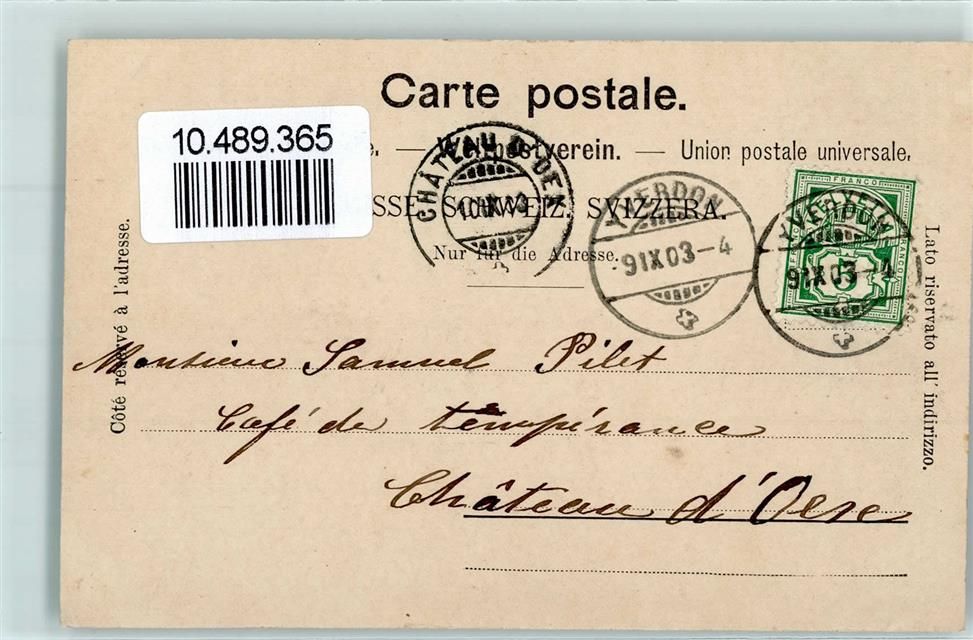 Carte postale.
10.489.365
Weltpostverein. — Union postale universale.
SSE. SCHWEIZ. SVIZZERA.
Nur für die Adresse.
CHÂTEAU D'OEX
YVERDON
9 IX 03-4
YVERDON
9 IX 03-4
FRANCO
HELVETIA
5
Côté réservé à l'adresse.
Lato riservato all' indirizzo.
Monsieur Samuel Pilet
Café de tempérance
Château d'Oex